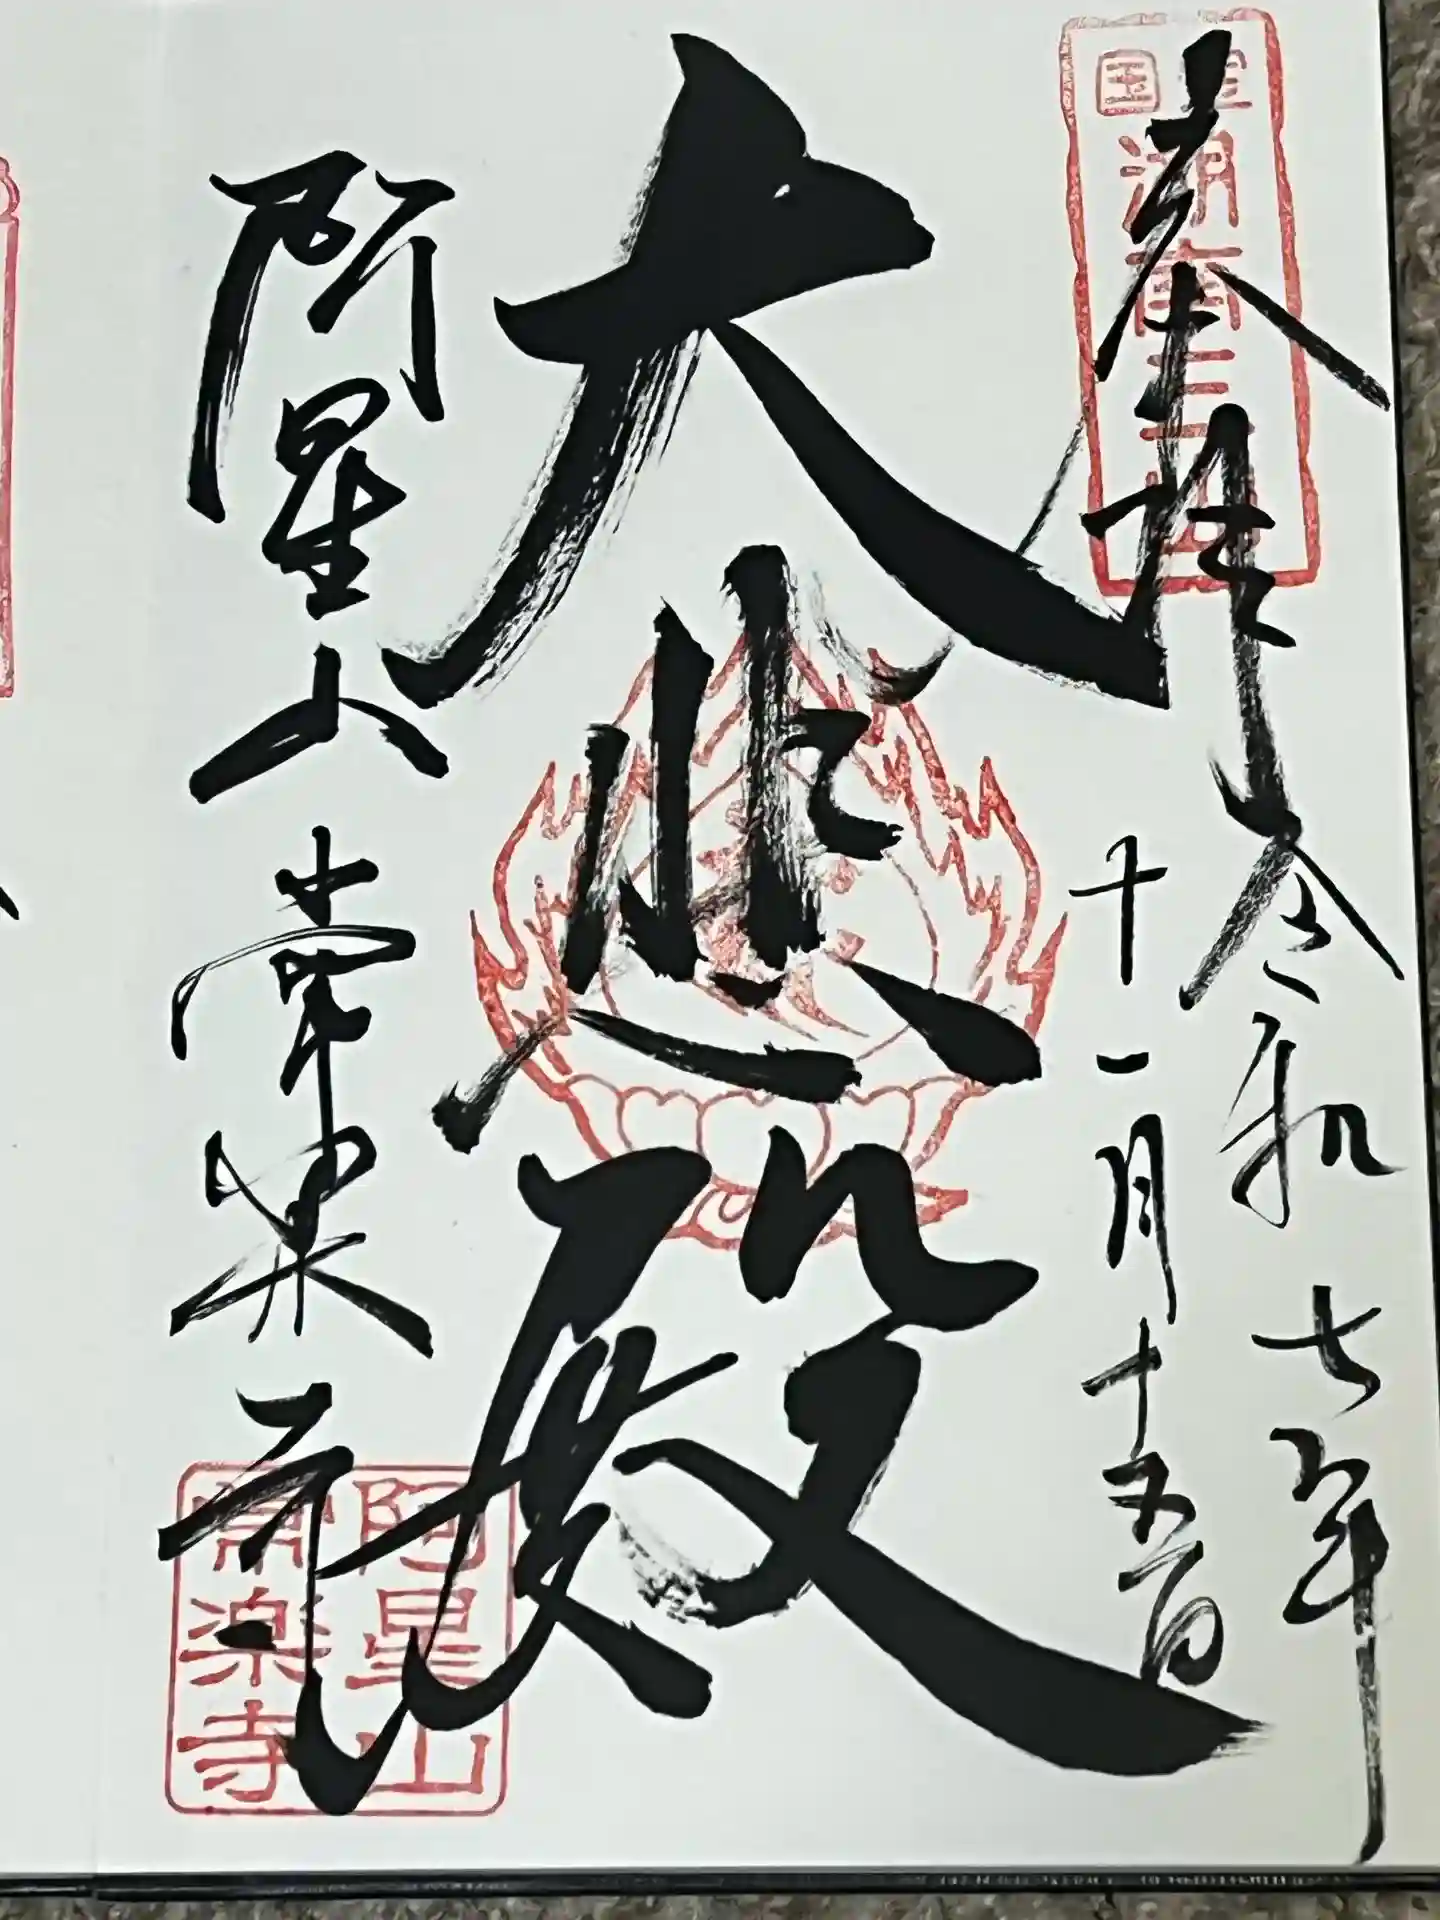 奉拝
令和七年
十一月十五日
大悲殿
阿星山
常楽寺
国宝
湖南三山
阿星山
常楽寺